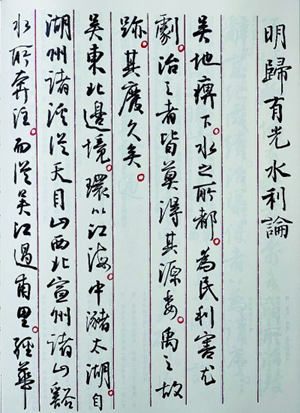 明歸有光水利論
吳地痺下。水之所都。為民利害尤
劇。治之者皆莫得其源委。禹之故
跡。其廢久矣。
吳東北邊境。環以江海。中瀦太湖。自
湖州諸溪從天目山西北宣州諸山谿
水所奔注。而從吳江過甫里。經華